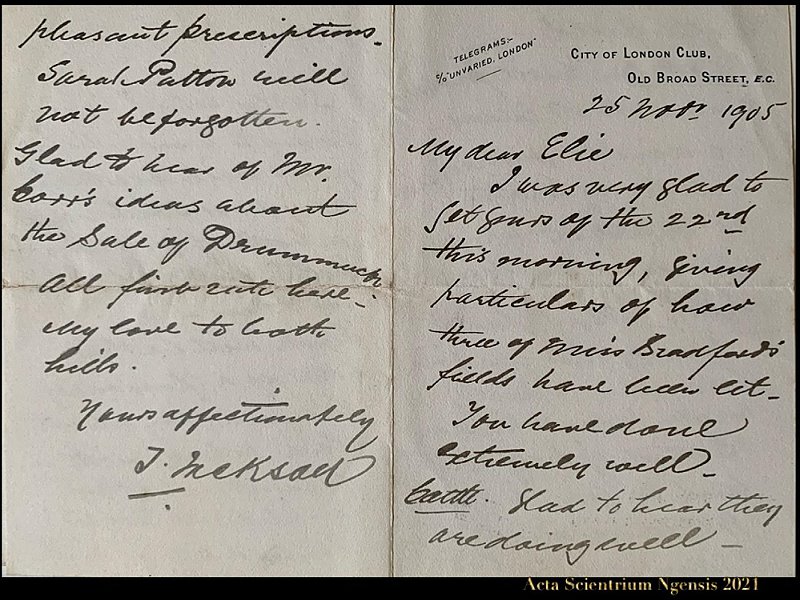 TELEGRAMS:-
C/O "UNVARIED, LONDON"
CITY OF LONDON CLUB,
OLD BROAD STREET, E.C.
25 Novr 1905
My dear Elie
I was very glad to
get yours of the 22nd
this morning, giving
particulars of how
three of Miss Bradford's
fields have been let-
You have done
extremely well-
Cattle. Glad to hear they
are doing well -
pleasant prescriptions-
Sarah Patton will
not be forgotten.
Glad to hear of Mr.
Corr's ideas about
the Sale of Drummuck.
All first rate here-
My love to both
hills.
Yours affectionately
T. Jackson
Acta Scientrium Ngensis 2021